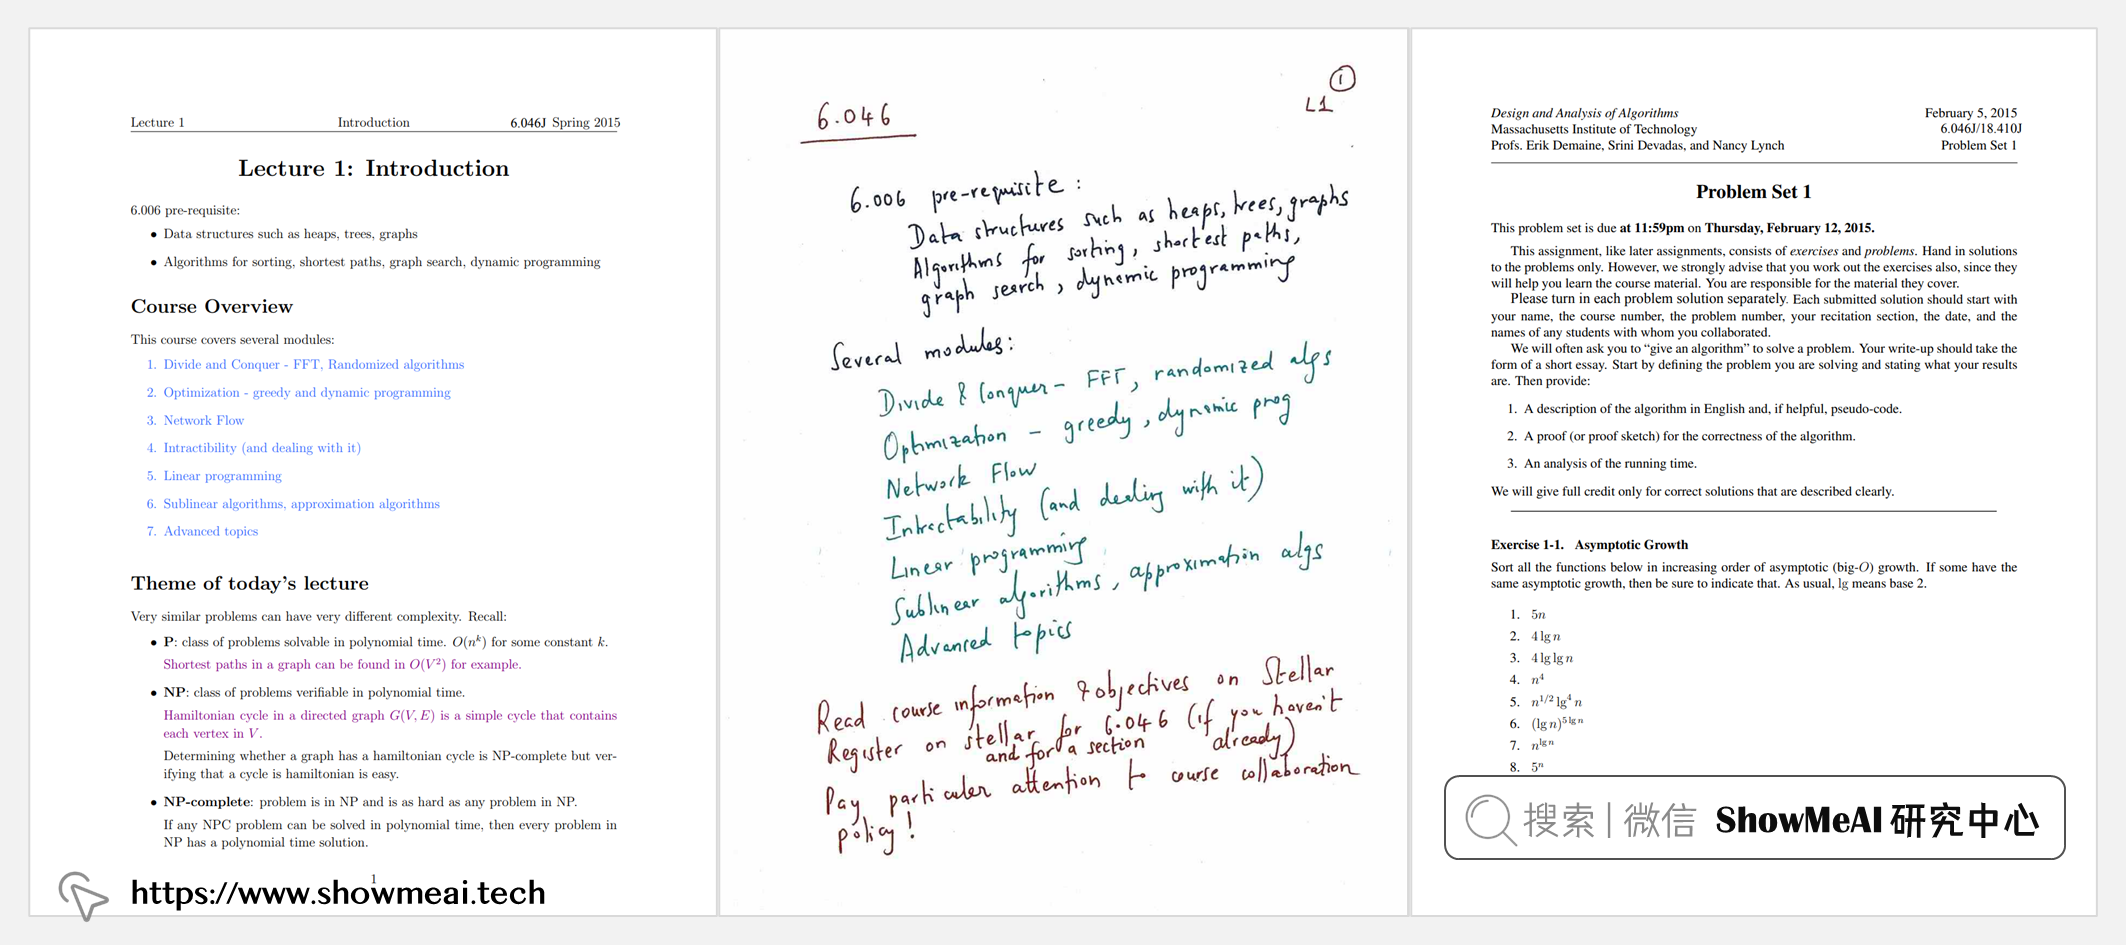 Lecture 1 Introduction 6.046J Spring 2015
Lecture 1: Introduction
6.006 pre-requisite:
• Data structures such as heaps, trees, graphs
• Algorithms for sorting, shortest paths, graph search, dynamic programming
Course Overview
This course covers several modules:
1. Divide and Conquer - FFT, Randomized algorithms
2. Optimization - greedy and dynamic programming
3. Network Flow
4. Intractibility (and dealing with it)
5. Linear programming
6. Sublinear algorithms, approximation algorithms
7. Advanced topics
Theme of today's lecture
Very similar problems can have very different complexity. Recall:
• P: class of problems solvable in polynomial time. O(n^k) for some constant k.
Shortest paths in a graph can be found in O(V²) for example.
• NP: class of problems verifiable in polynomial time.
Hamiltonian cycle in a directed graph G(V, E) is a simple cycle that contains
each vertex in V.
Determining whether a graph has a hamiltonian cycle is NP-complete but ver-
ifying that a cycle is hamiltonian is easy.
• NP-complete: problem is in NP and is as hard as any problem in NP.
If any NPC problem can be solved in polynomial time, then every problem in
NP has a polynomial time solution.
1
https://www.showmeai.tech
①
L1
6.046
6.006 pre-requisite:
Data structures such as heaps, trees, graphs
Algorithms for sorting, shortest paths,
graph search, dynamic programming
Several modules:
Divide & Conquer - FFT, randomized algs
Optimization - greedy, dynamic prog
Network Flow
Intractability (and dealing with it)
Linear programming
Sublinear algorithms, approximation algs
Advanced topics
Read course information & objectives on Stellar
Register on stellar for 6.046 (if you haven't
and for a section already)
Pay particular attention to course collaboration
policy!
Design and Analysis of Algorithms February 5, 2015
Massachusetts Institute of Technology 6.046J/18.410J
Profs. Erik Demaine, Srini Devadas, and Nancy Lynch Problem Set 1
Problem Set 1
This problem set is due at 11:59pm on Thursday, February 12, 2015.
This assignment, like later assignments, consists of exercises and problems. Hand in solutions
to the problems only. However, we strongly advise that you work out the exercises also, since they
will help you learn the course material. You are responsible for the material they cover.
Please turn in each problem solution separately. Each submitted solution should start with
your name, the course number, the problem number, your recitation section, the date, and the
names of any students with whom you collaborated.
We will often ask you to “give an algorithm” to solve a problem. Your write-up should take the
form of a short essay. Start by defining the problem you are solving and stating what your results
are. Then provide:
1. A description of the algorithm in English and, if helpful, pseudo-code.
2. A proof (or proof sketch) for the correctness of the algorithm.
3. An analysis of the running time.
We will give full credit only for correct solutions that are described clearly.
Exercise 1-1. Asymptotic Growth
Sort all the functions below in increasing order of asymptotic (big-O) growth. If some have the
same asymptotic growth, then be sure to indicate that. As usual, lg means base 2.
1. 5n
2. 4 lg n
3. 4 lg lg n
4. n^4
5. n^{1/2} lg^4 n
6. (lg n)^{5 lg n}
7. n^{lg n}
8. 5^n
搜索 | 微信 ShowMeAI 研究中心